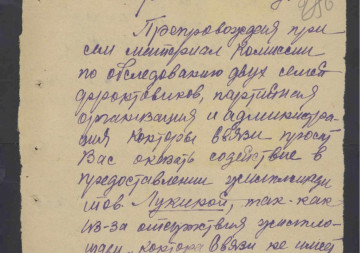 250
Препровождая при
сем материал комиссии
по обследованию двух семей
фронтовиков, партийная
организация и администра-
ция конторы связи просит
Вас оказать содействие в
предоставлении жилплощади
тов. Лужиной, так-как
из-за отсутствия жилпло-
щади, контора связи не имеет